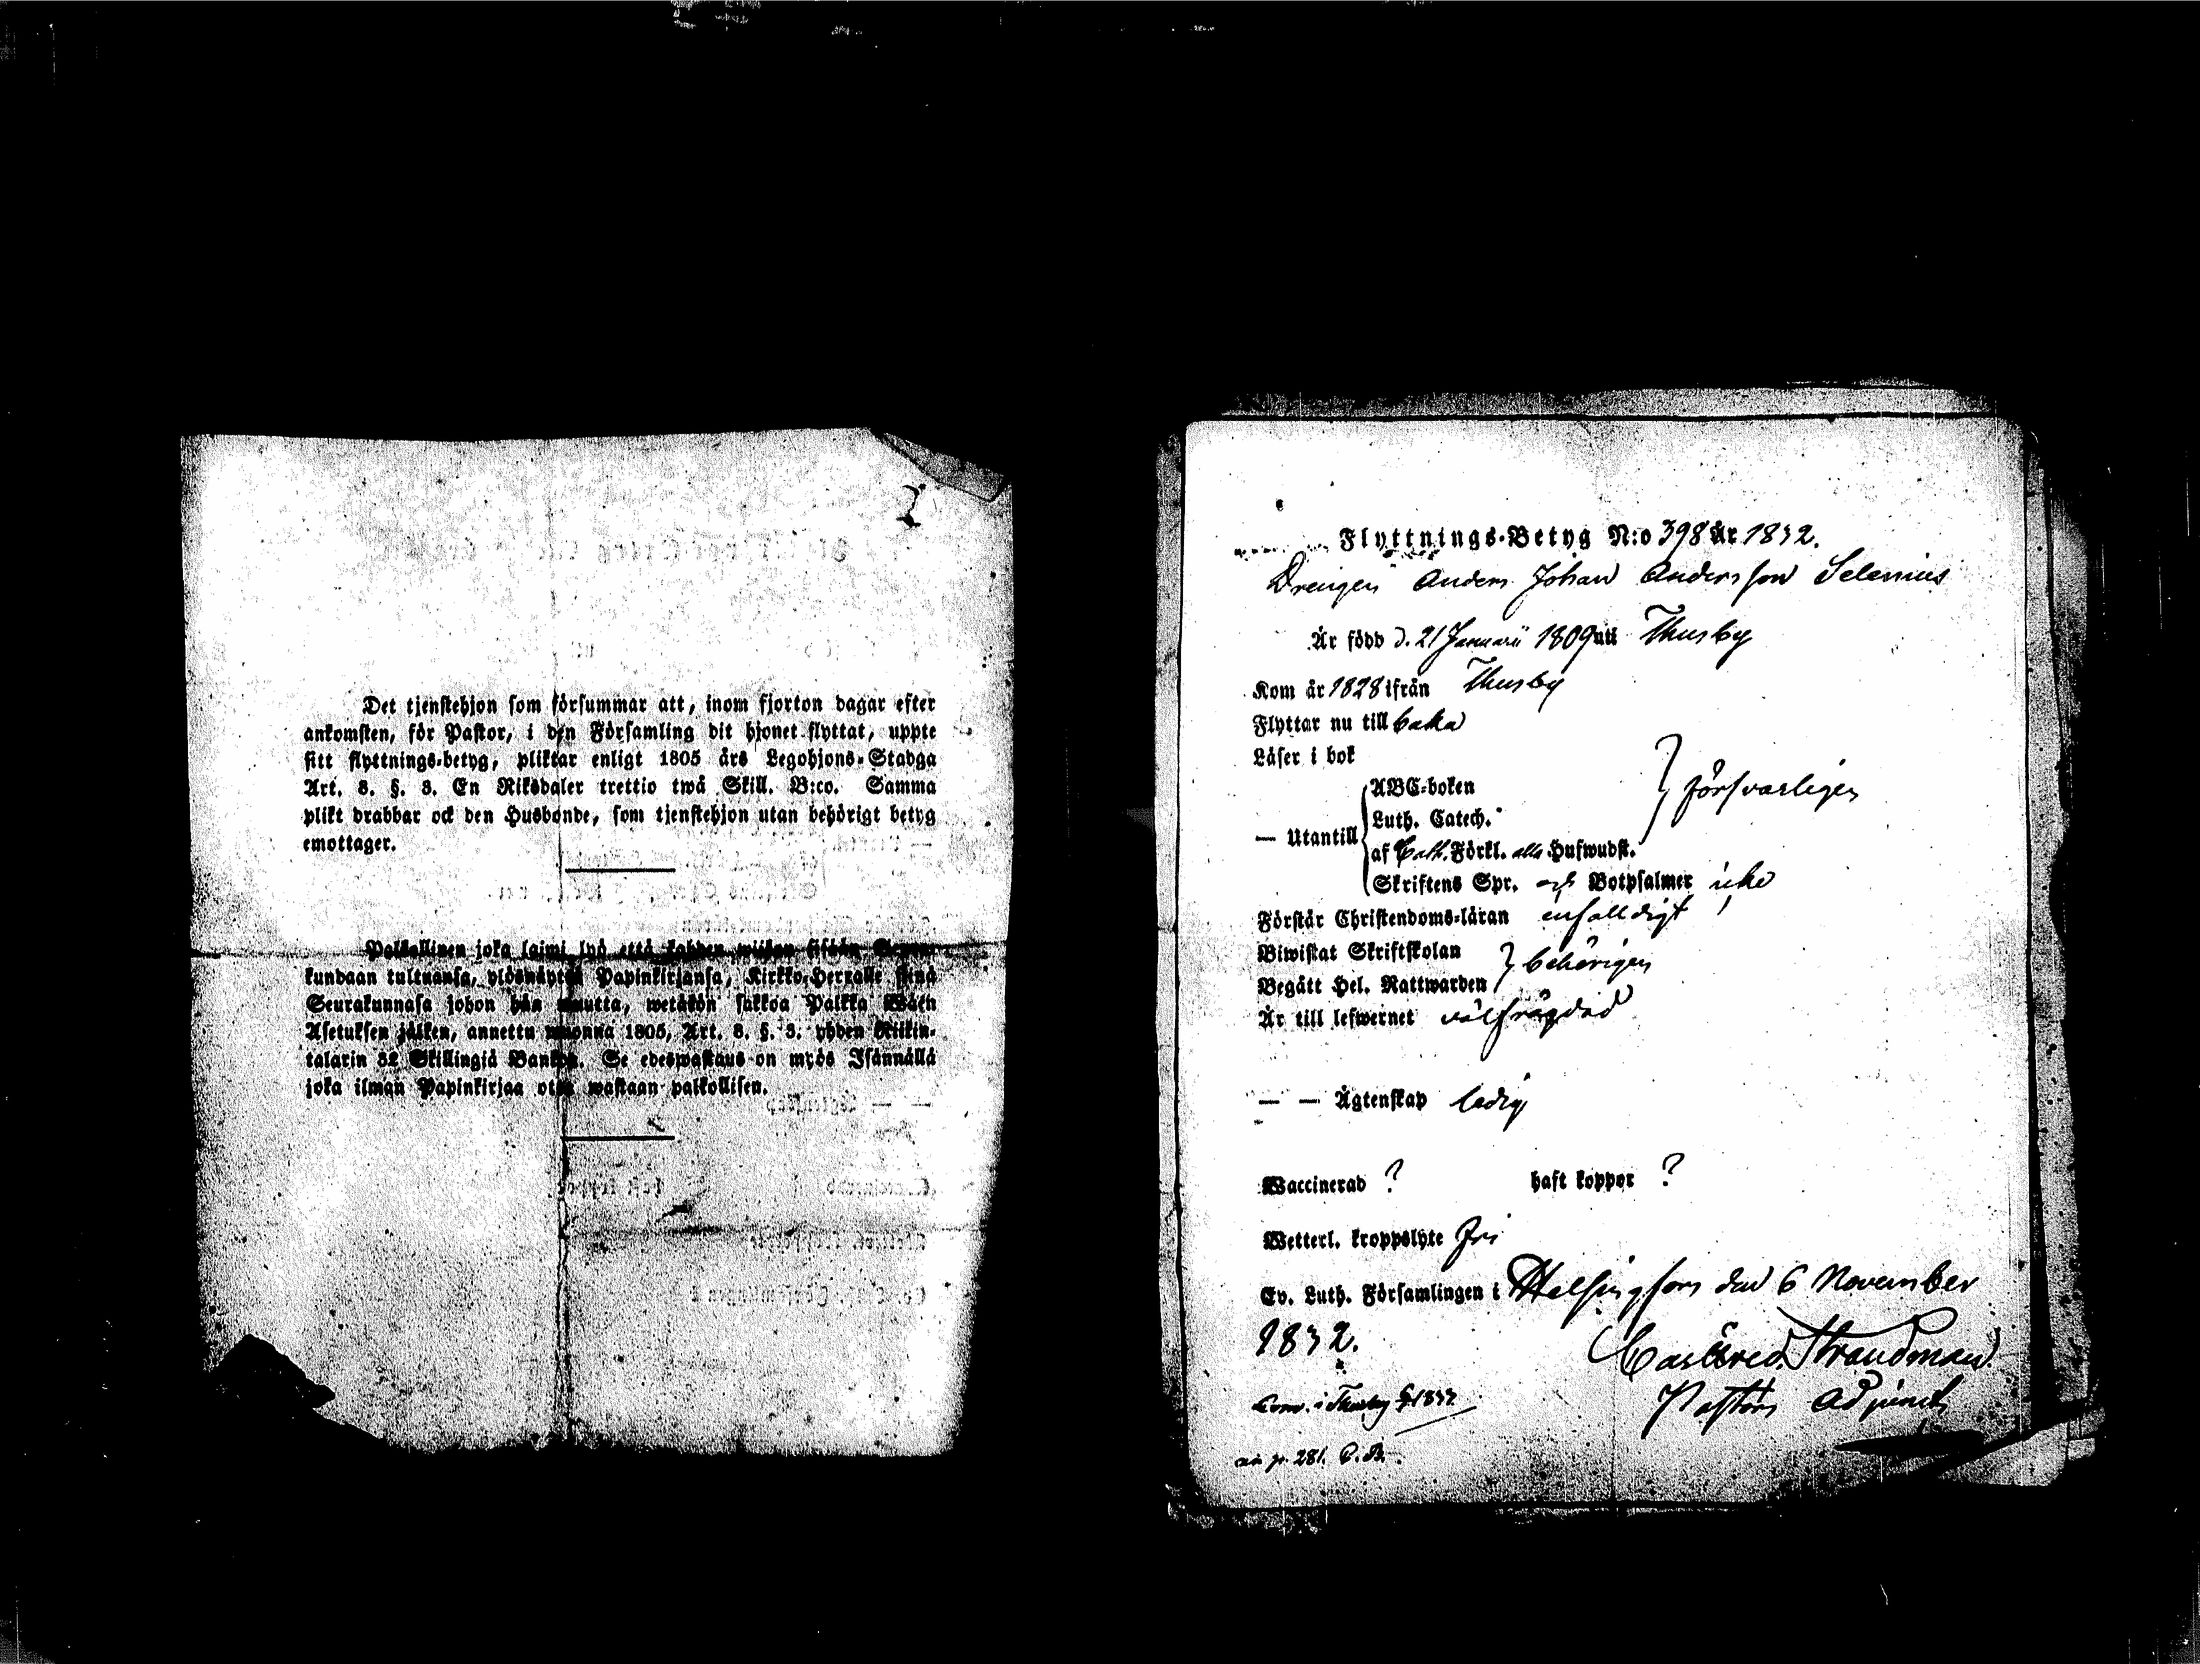 Det tjenstehjon som försummar att, inom fjorton dagar efter
ankomsten, för Pastor, i den Församling dit hjonet flyttat, uppte
sitt flyttnings-betyg, pliktar enligt 1805 års Legohjons-Stadga
Art. 8. §. 3. En Riksdaler trettio twå Skill. B:co. Samma
plikt drabbar ock den Husbonde, som tjenstehjon utan behörigt betyg
emottager.
Palkollinen joka laimi lyö että kahden wiikon sisään
kundaan tultuansa, ylösnäyttä Papinkirjansa, Kirkko-Herralle siinä
Seurakunnasa johon hän muutta, wetäkön sakkoa Palkka Wäen
Asetuksen jälken, annettu wuonna 1805, Art. 8. §. 3. yhden Riikin-
talarin 32 Skillingiä Bankon. Se edeswastaus on myös Isännällä
joka ilman Papinkirjaa otta wastaan palkollisen.
Flyttnings-Betyg N:o 398 År 1832.
Drengen Anders Johan Andersson Selenius
Är född d. 21 Januarii 1809 uti Thusby
Kom år 1828 ifrån Thusby
Flyttar nu till baka
Läser i bok
ABC-boken
Luth. Catech.
} försvarligen
— Utantill
af Cath. Förkl. alla Hufwudst.
Skriftens Spr. och Botpsalmer icke
Förstår Christendoms-läran enfalldigt
Biwistat Skriftskolan
} behörigen
Begått Hel. Nattwarden
Är till lefwernet välfrägdad
— — Ägtenskap ledig
Waccinerad ? haft koppor ?
Wetterl. kroppslyte fri
Ev. Luth. Församlingen i Helsingfors den 6 November
1832.
Carl Fred. Strandman.
Pastors Adjunct
i Thusby 1832
p. 281.